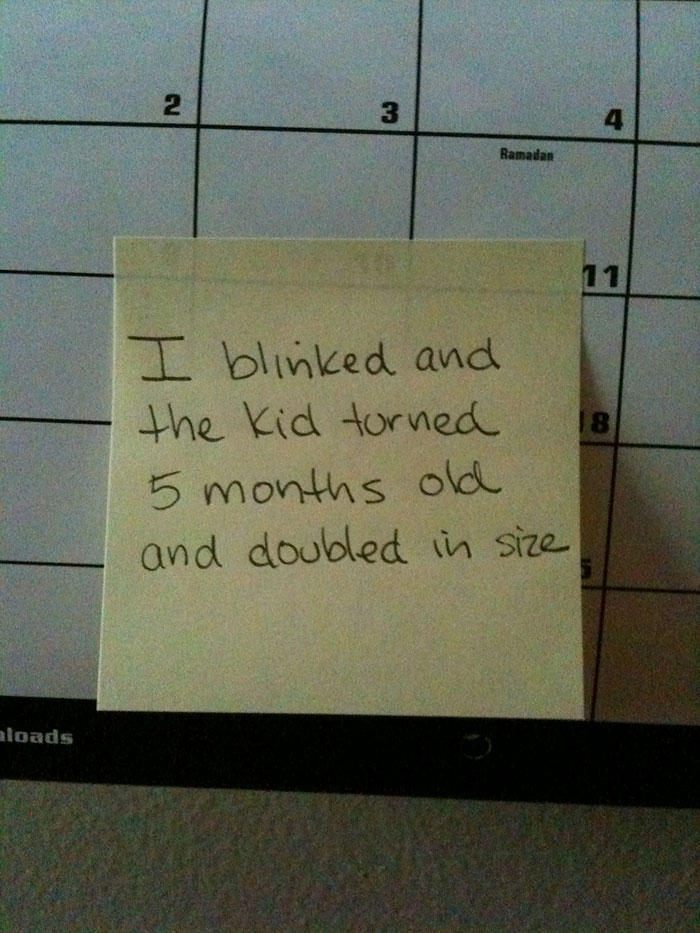 2
3
4
Ramadan
11
I blinked and
the kid turned
5 months old
and doubled in size
18
nloads